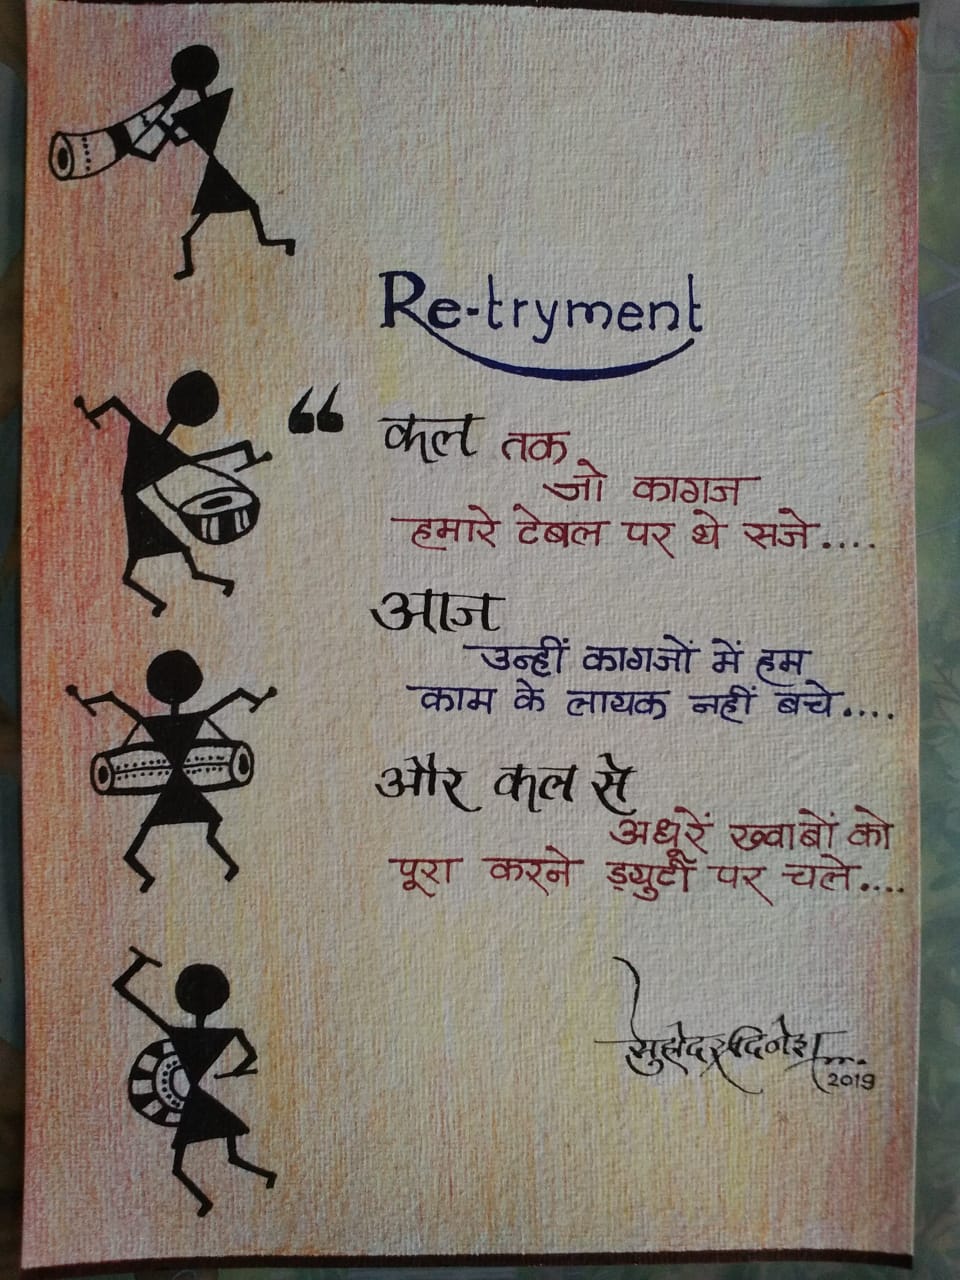 Re-tryment
“ कल तक
जो कागज
हमारे टेबल पर थे सजे....
आज
उन्हीं कागजों में हम
काम के लायक नहीं बचे....
और कल से
अधूरें ख्वाबों को
पूरा करने ड्युटी पर चले....
2019